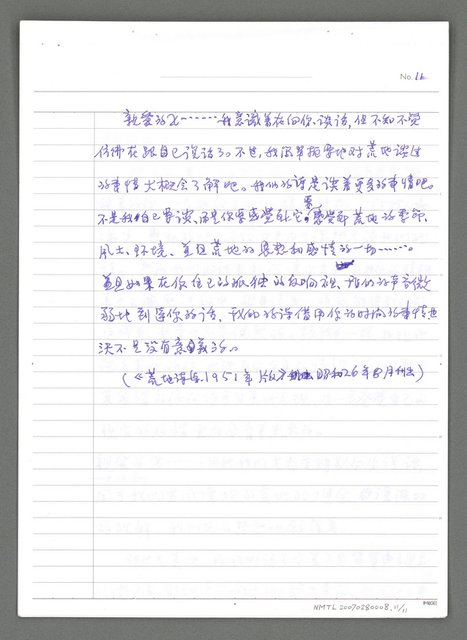 No. 16
親愛的X……我意識著在向你談話,但不知不覺
彷彿在跟自己說話了。不過,我很單拍子地對荒地談過
的事情大概會了解吧。我們的詩是談著更多的事情吧。
不是我自己要談,而是你要感覺到它,要感覺荒地的事命,
風土、環境、並且荒地的思想和感情的一切……。
並且如果在你自己的孤獨的反響裡,我們的聲音微
弱地到達你的話,我的詩借用你的時間的事情也
決不是沒有意義的。
(《荒地詩集1951年版》昭和26年8月刊出)
NMTL 20070280008 11/11